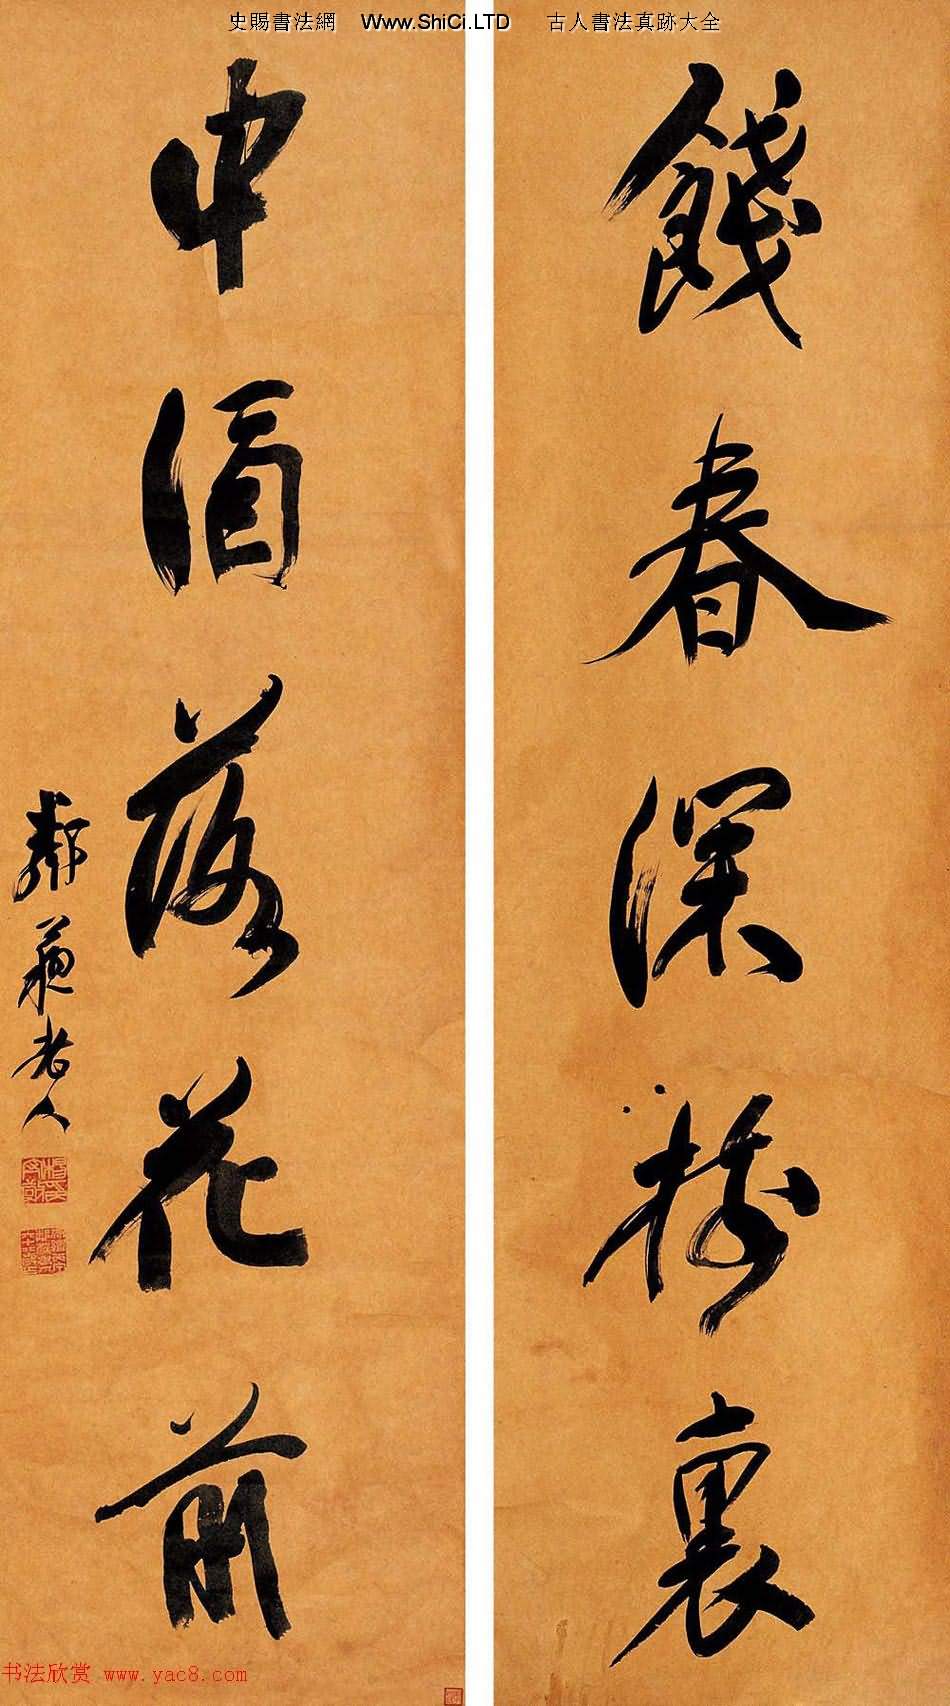 史賜書法網 Www.ShiCi.LTD 古人書法真跡大全
餞春深樹裏
中酒落花前
鄰蘇老人
书法欣赏 www.yac8.com